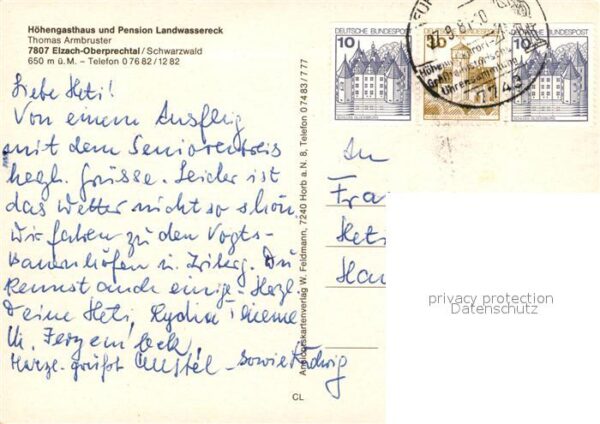 Höhengasthaus und Pension Landwassereck
Thomas Armbruster
7807 Elzach-Oberprechtal / Schwarzwald
650 m ü.M. – Telefon 0 76 82 / 12 82
Liebe Heti!
Von einem Ausflug
mit dem Seniorenkreis
herzl. Grüsse. Leider ist
das Wetter nicht so schön.
Wir fahren zu den Vogts-
Bauernhöfen u. Triberg. Du
kennst auch einige – Herzl.
Deine Heti, Lydia
u.
Herzl. grüßt – sowie Ludwig
Ansichtskartenverlag W. Feldmann, 7240 Horb a. N. 8, Telefon 0 74 83 / 7 77
CL
10 DEUTSCHE BUNDESPOST
DEUTSCHE BUNDESPOST
10 DEUTSCHE BUNDESPOST
SCHLOSS GLÜCKSBURG
SCHLOSS GLÜCKSBURG
7743
Uhrensammlung
An
Heti
privacy protection
Datenschutz